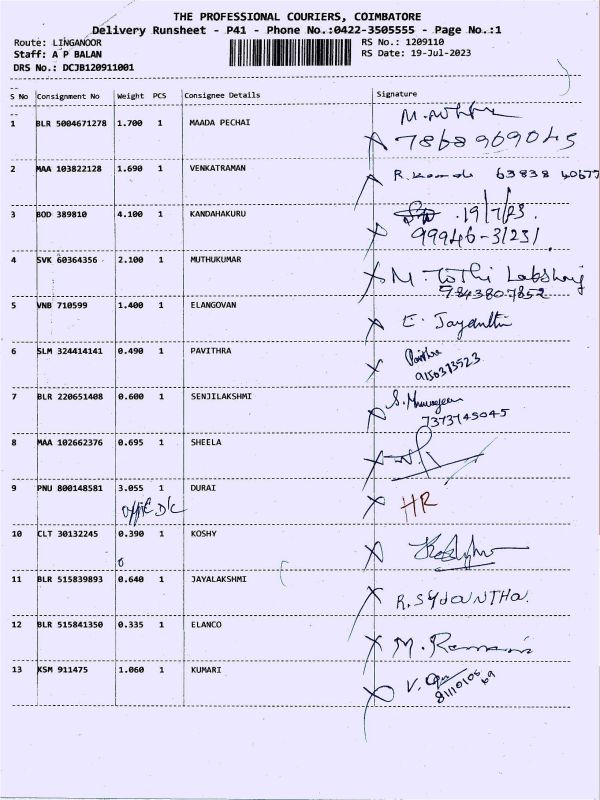 THE PROFESSIONAL COURIERS, COIMBATORE
Delivery Runsheet - P41 - Phone No.:0422-3505555 - Page No.:1
Route: LINGANOOR RS No.: 1209110
Staff: A P BALAN RS Date: 19-Jul-2023
DRS No.: DCJB120911001
S No Consignment No Weight PCS Consignee Details Signature
1 BLR 5004671278 1.700 1 MAADA PECHAI
7868969045
2 MAA 103822128 1.690 1 VENKATRAMAN R. 63838 40677
3 BOD 389810 4.100 1 KANDAHAKURU 19/7/23.
99946-31231
4 SVK 60364356 2.100 1 MUTHUKUMAR M.
9843807852
5 VNB 710599 1.400 1 ELANGOVAN E. Jayanthi
6 SLM 324414141 0.490 1 PAVITHRA Pavithra
9150393523
7 BLR 220651408 0.600 1 SENJILAKSHMI S. Murugesan
7373745045
8 MAA 102662376 0.695 1 SHEELA
9 PNU 800148581 3.055 1 DURAI HR
office D/c
10 CLT 30132245 0.390 1 KOSHY
11 BLR 515839893 0.640 1 JAYALAKSHMI R. SUJANTHA.
12 BLR 515841350 0.335 1 ELANCO M. Ramani
13 KSM 911475 1.060 1 KUMARI V.